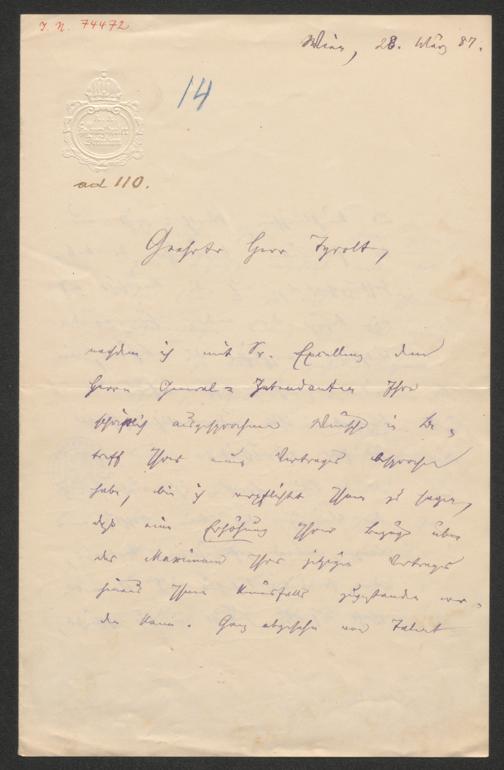 J. N. 74472
Wien, 28. März 87.
14
ad 110.
Geehrter Herr Tyrolt,
nachdem ich mit Sr. Excellenz dem
Herrn General-Intendanten Ihre
schriftlich ausgesprochenen Wünsche in Be-
treff Ihres neuen Vertrages besprochen
habe, bin ich verpflichtet Ihnen zu sagen,
daß eine Erhöhung Ihrer Bezüge über
das Maximum Ihres jetzigen Vertrags
hinaus Ihnen keinesfalls zugestanden wer-
den kann. Ganz abgesehen von